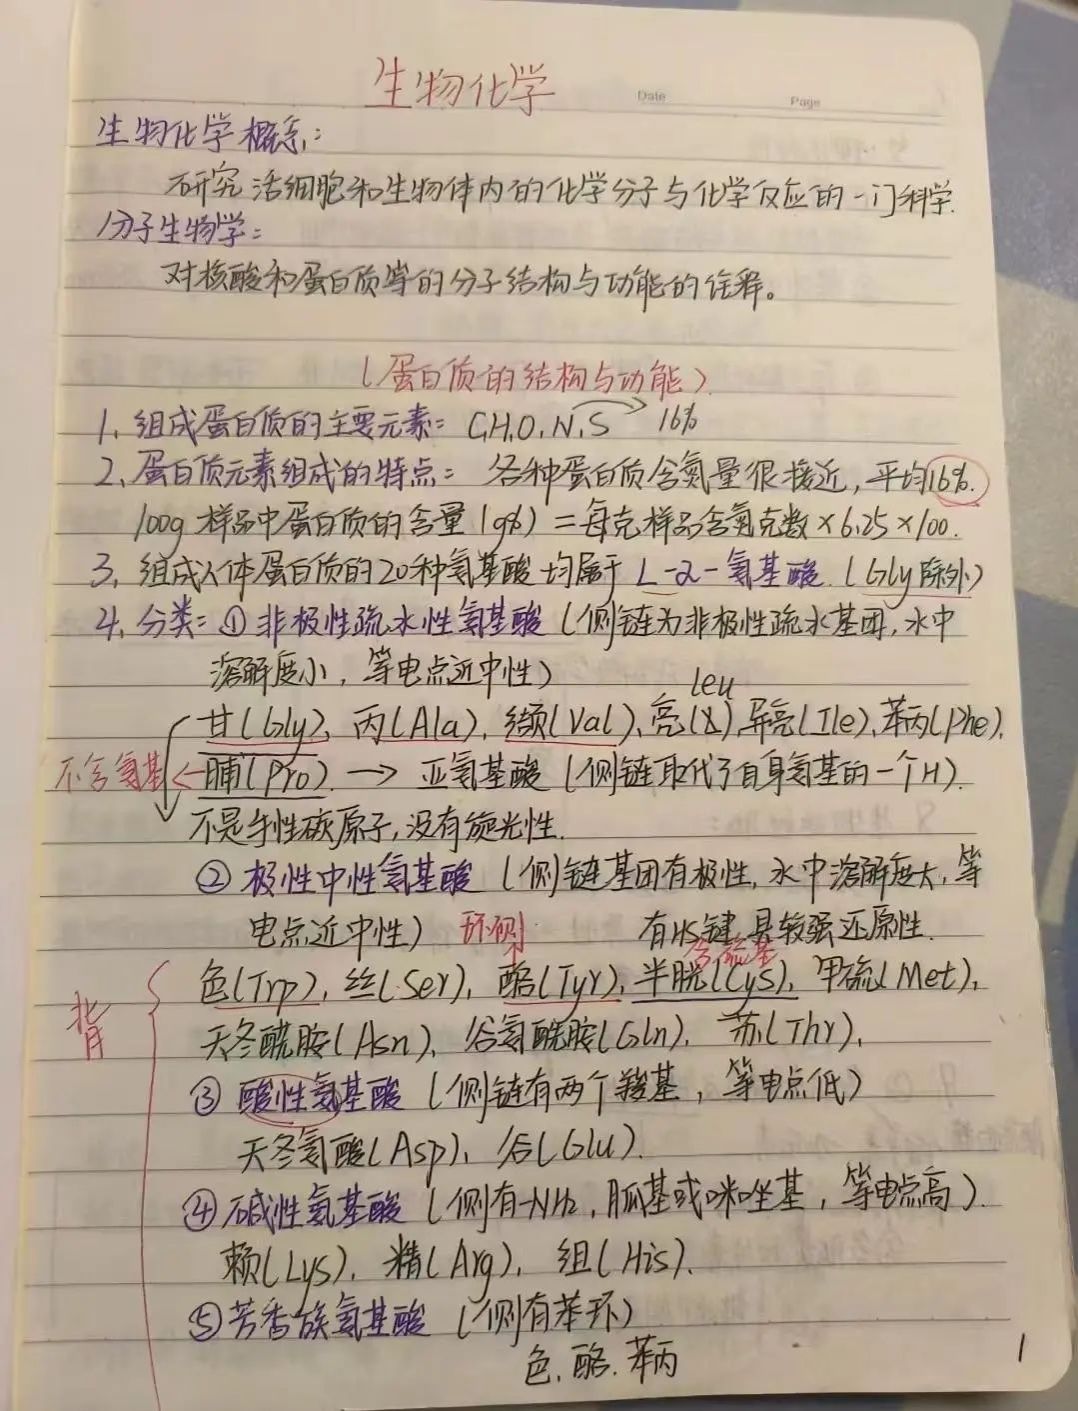 生物化学
Date Page
生物化学概念:
研究活细胞和生物体内的化学分子与化学反应的一门科学.
分子生物学:
对核酸和蛋白质等的分子结构与功能的诠释。
(蛋白质的结构与功能)
1、组成蛋白质的主要元素: C,H,O,N,S 16%
2、蛋白质元素组成的特点: 各种蛋白质含氮量很接近,平均16%.
100g样品中蛋白质的含量(g%)=每克样品含氮克数×6.25×100.
3、组成人体蛋白质的20种氨基酸均属于L-α-氨基酸.(Gly除外)
4、分类:①非极性疏水性氨基酸(侧链为非极性疏水基团,水中
溶解度小, 等电点近中性)
leu
甘(Gly)、丙(Ala)、缬(Val)、亮( )、异亮(Ile)、苯丙(Phe)、
不含氨基←脯(Pro) → 亚氨基酸(侧链取代了自身氨基的一个H).
不是手性碳原子,没有旋光性.
②极性中性氨基酸(侧链基团有极性,水中溶解度大,等
电点近中性) 环侧 有HS键,具较强还原性.
含巯基
背 色(Trp)、丝(Ser)、酪(Tyr)、半胱(Cys)、甲硫(Met)、
天冬酰胺(Asn)、谷氨酰胺(Gln)、苏(Thr)、
③酸性氨基酸(侧链有两个羧基, 等电点低)
天冬氨酸(Asp)、谷(Glu).
④碱性氨基酸(侧有-NH₂,胍基或咪唑基,等电点高).
赖(Lys)、精(Arg)、组(His).
⑤芳香族氨基酸(侧有苯环)
色、酪、苯丙
1